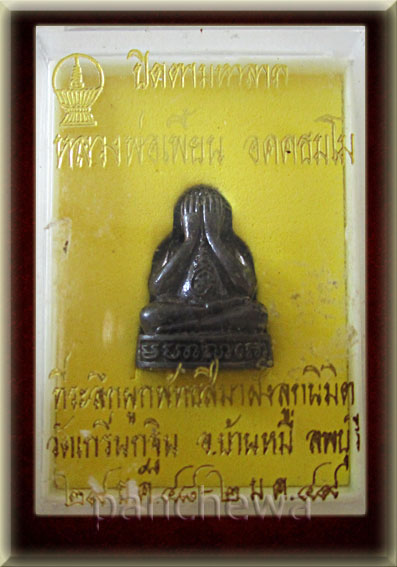 ปิดตามหาลาภ
หลวงพ่อเพี้ยน อคฺคธมฺโม
ที่ระลึกผูกพัทธสีมาฝังลูกนิมิต
วัดเกริ่นกฐิน อ.บ้านหมี่ ลพบุรี
ธ.ค. ๔๘ - ๒ ม.ค. ๔๙
panchewa